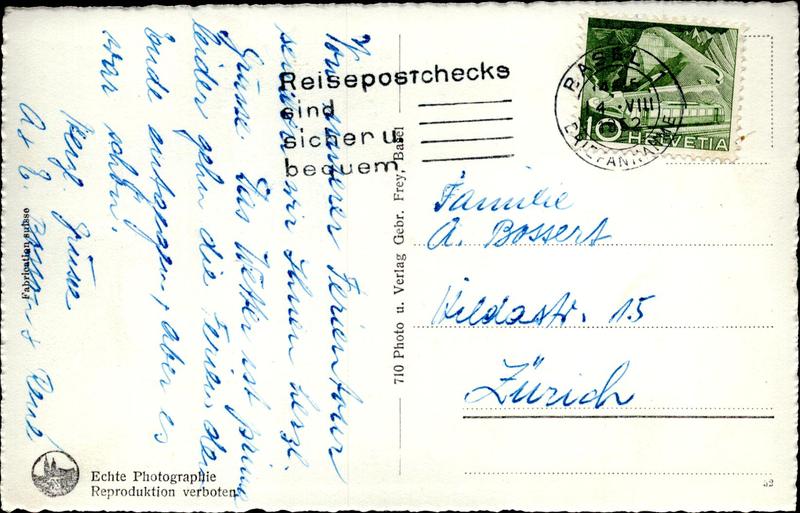 Von unserer Ferientour
senden wir Ihnen herzl.
Grüsse. Das Wetter ist prima
leider gehen die Ferien dem
Ende entgegen, aber es
war schön.
Herzl. Grüsse
A. & E.
Fabrication suisse
Echte Photographie
Reproduktion verboten
710 Photo u. Verlag Gebr. Frey, Basel
Reisepostchecks
sind
sicher u
bequem
BASEL 1
VIII
BRIEFANNAHME
10 HELVETIA
Familie
A. Bossert
Hildastr. 15
Zürich
52